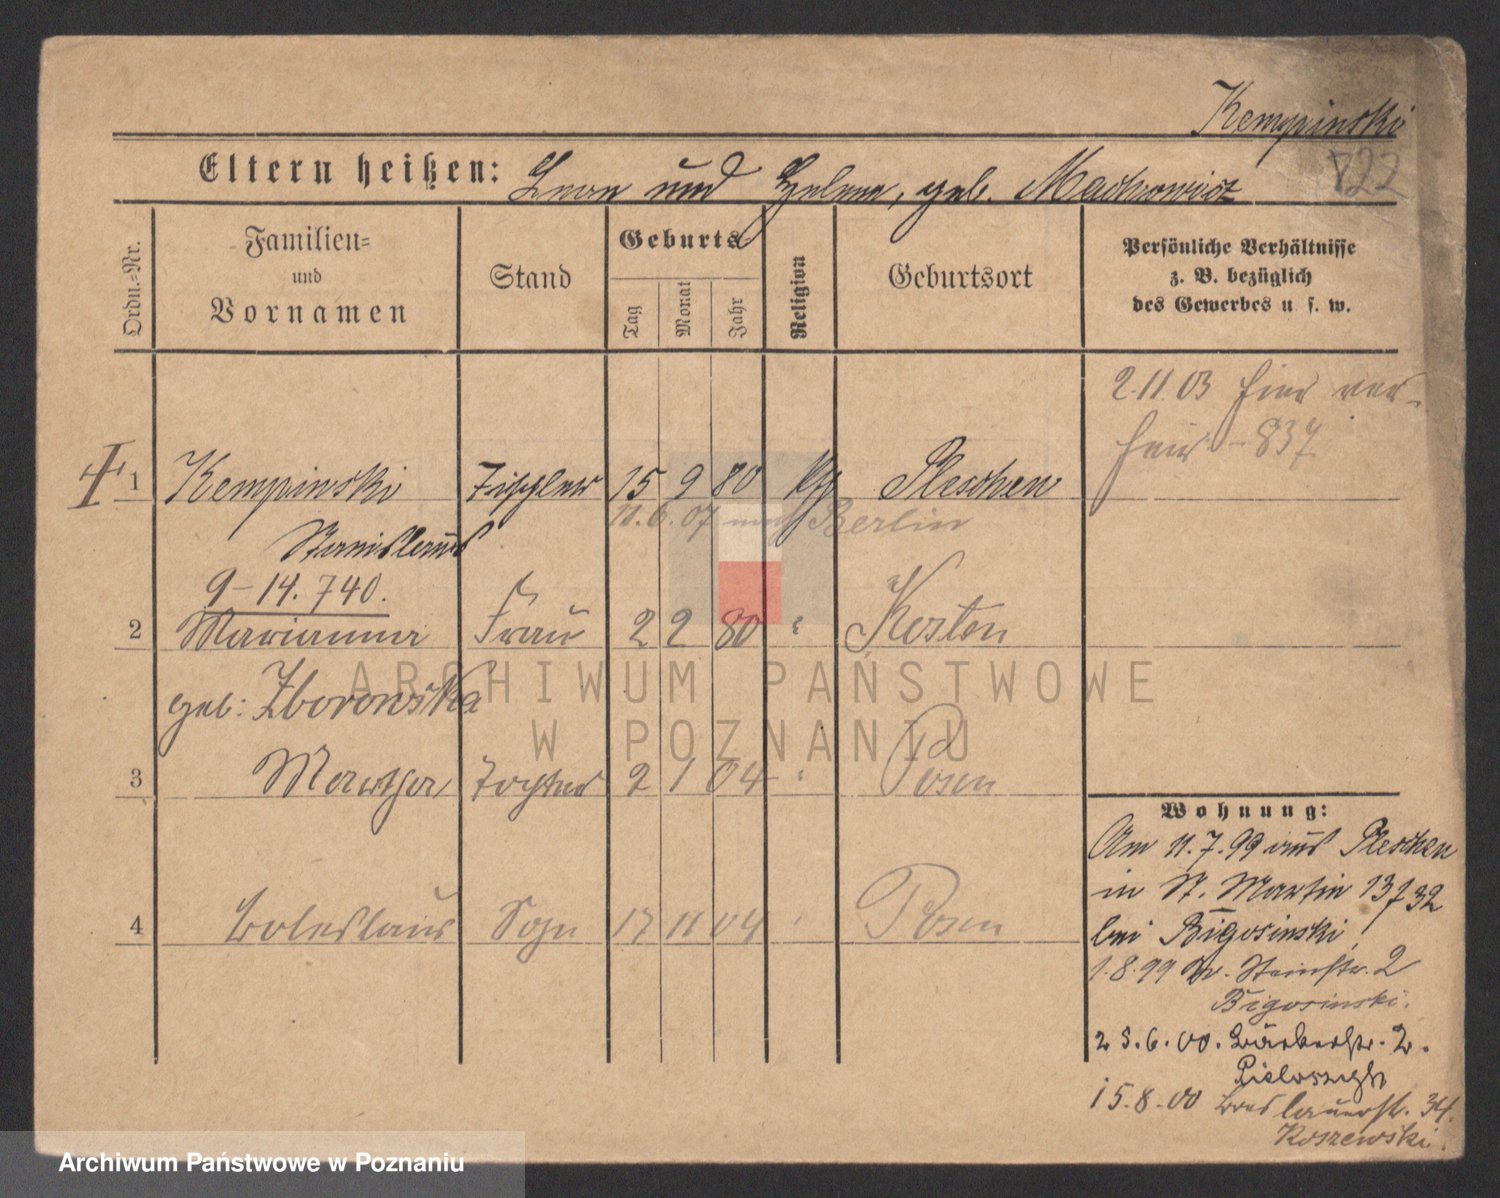 Kempinski
822
Eltern heißen: Leon und Helene, geb. Machowicz
Ordn.-Nr.
Familien-
und
Vornamen
Stand
Geburts
Tag
Monat
Jahr
Religion
Geburtsort
Persönliche Verhältnisse
z. B. bezüglich
des Gewerbes u. s. w.
2.11.03 hier ver-
heir. - 837.
1 Kempinski Tischler 15 9 80 kth Pleschen
11.6.07 nach Berlin
Stanislaus
9-14.740.
2 Marianna Frau 2 2 80 " Kosten
geb: Zborowska
3 Martha Tochter 2 1 04 " Posen
4 Boleslaus Sohn 17 11 04 " Posen
Wohnung:
Am 11.7.99 aus Pleschen
in St. Martin 13/32
bei Bigosinski
1.8.99 Kl. Steinstr. 2
Bigosinski.
23.6.00. Bäckerstr. 2.
15.8.00 Breslauerstr. 34.
Koszewski.
ARCHIWUM PAŃSTWOWE
W POZNANIU
Archiwum Państwowe w Poznaniu